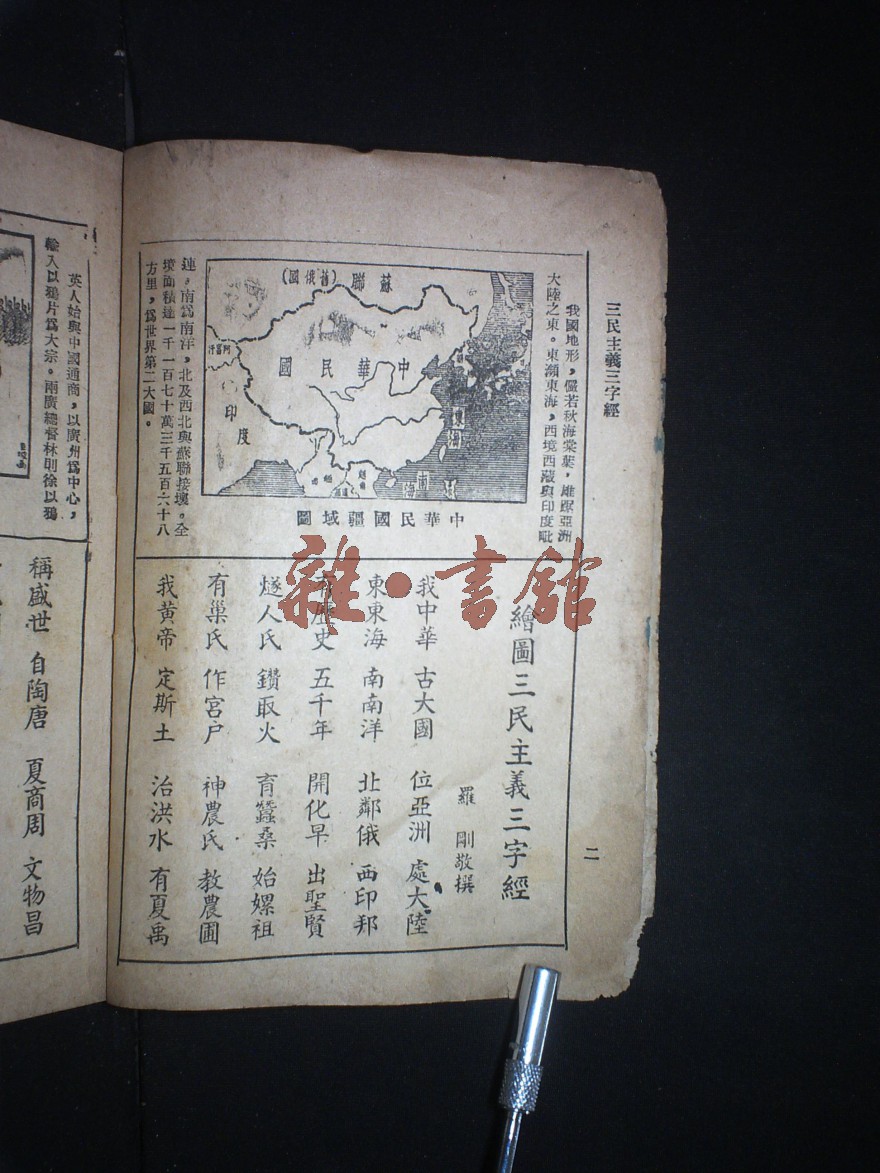 三民主義三字經
二
我國地形，儼若秋海棠葉，雄踞亞洲
大陸之東。東瀕東海，西境西藏與印度毗
蘇聯(舊俄國)
中華民國
阿富汗
印度
東海
南海
中華民國疆域圖
連。南爲南洋，北及西北與蘇聯接壤。全
境面積達一千一百七十萬三千五百六十八
方里，爲世界第二大國。
繪圖三民主義三字經
羅剛敬撰
我中華 古大國 位亞洲 處大陸
東東海 南南洋 北鄰俄 西印邦
有歷史 五千年 開化早 出聖賢
燧人氏 鑽取火 育蠶桑 始嫘祖
有巢氏 作宮戶 神農氏 教農圃
我黃帝 定斯土 治洪水 有夏禹
英人始與中國通商，以廣州爲中心，
輸入以鴉片爲大宗。兩廣總督林則徐以鴉
稱盛世 自陶唐 夏商周 文物昌
雜·書館